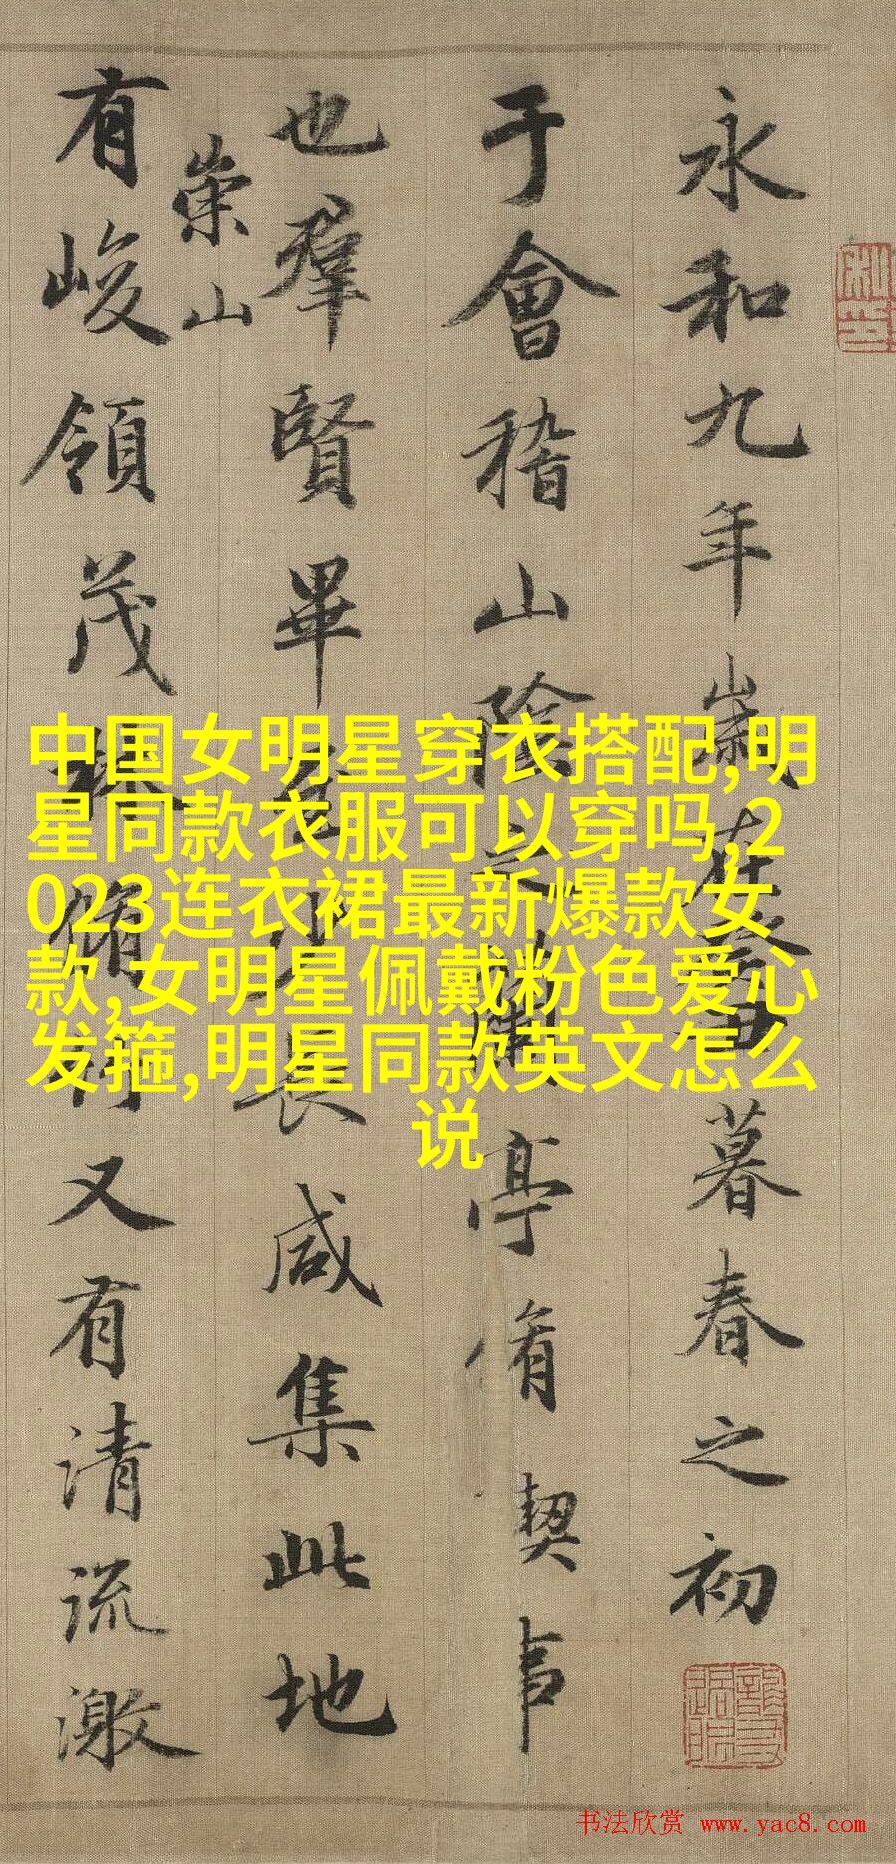 永和九年歲在癸丑暮春之初
于會稽山陰之蘭亭脩契事
也羣賢畢至少長咸集此地
崇山
有峻領茂林脩竹又有清流激
中国女明星穿衣搭配,明
星同款衣服可以穿吗,2
023连衣裙最新爆款女
款,女明星佩戴粉色爱心
发箍,明星同款英文怎么
说
书法欣赏 www.yac8.com